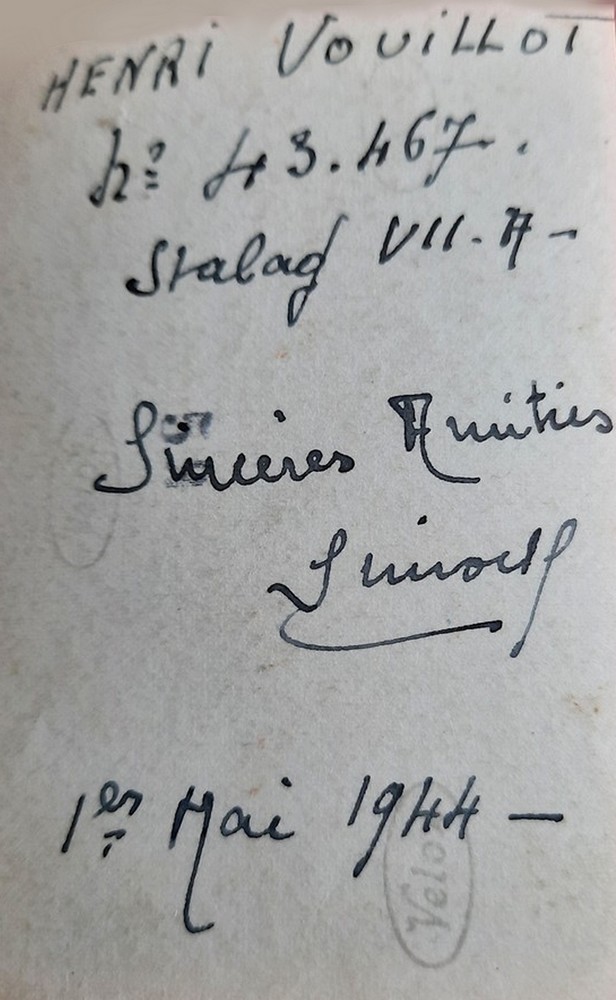 HENRI VOUILLOT
No 43.467.
Stalag VII-A-
Sincères Amitiés
1er Mai 1944 —
Velox